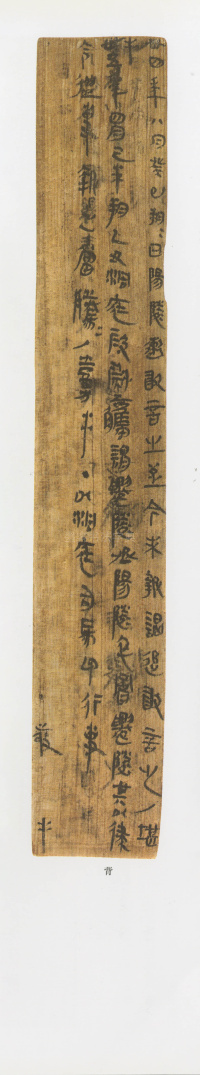 卅四年八月癸巳朔=日陽陵遬敢言之至今未報謁追敢言之ノ堪
手卅五年四月己未朔乙丑洞庭叚尉觿謂遷陵丞陽陵卒署遷陵其以律
令從事報之當騰=ノ嘉手·以洞庭司馬印行事
敬手
背